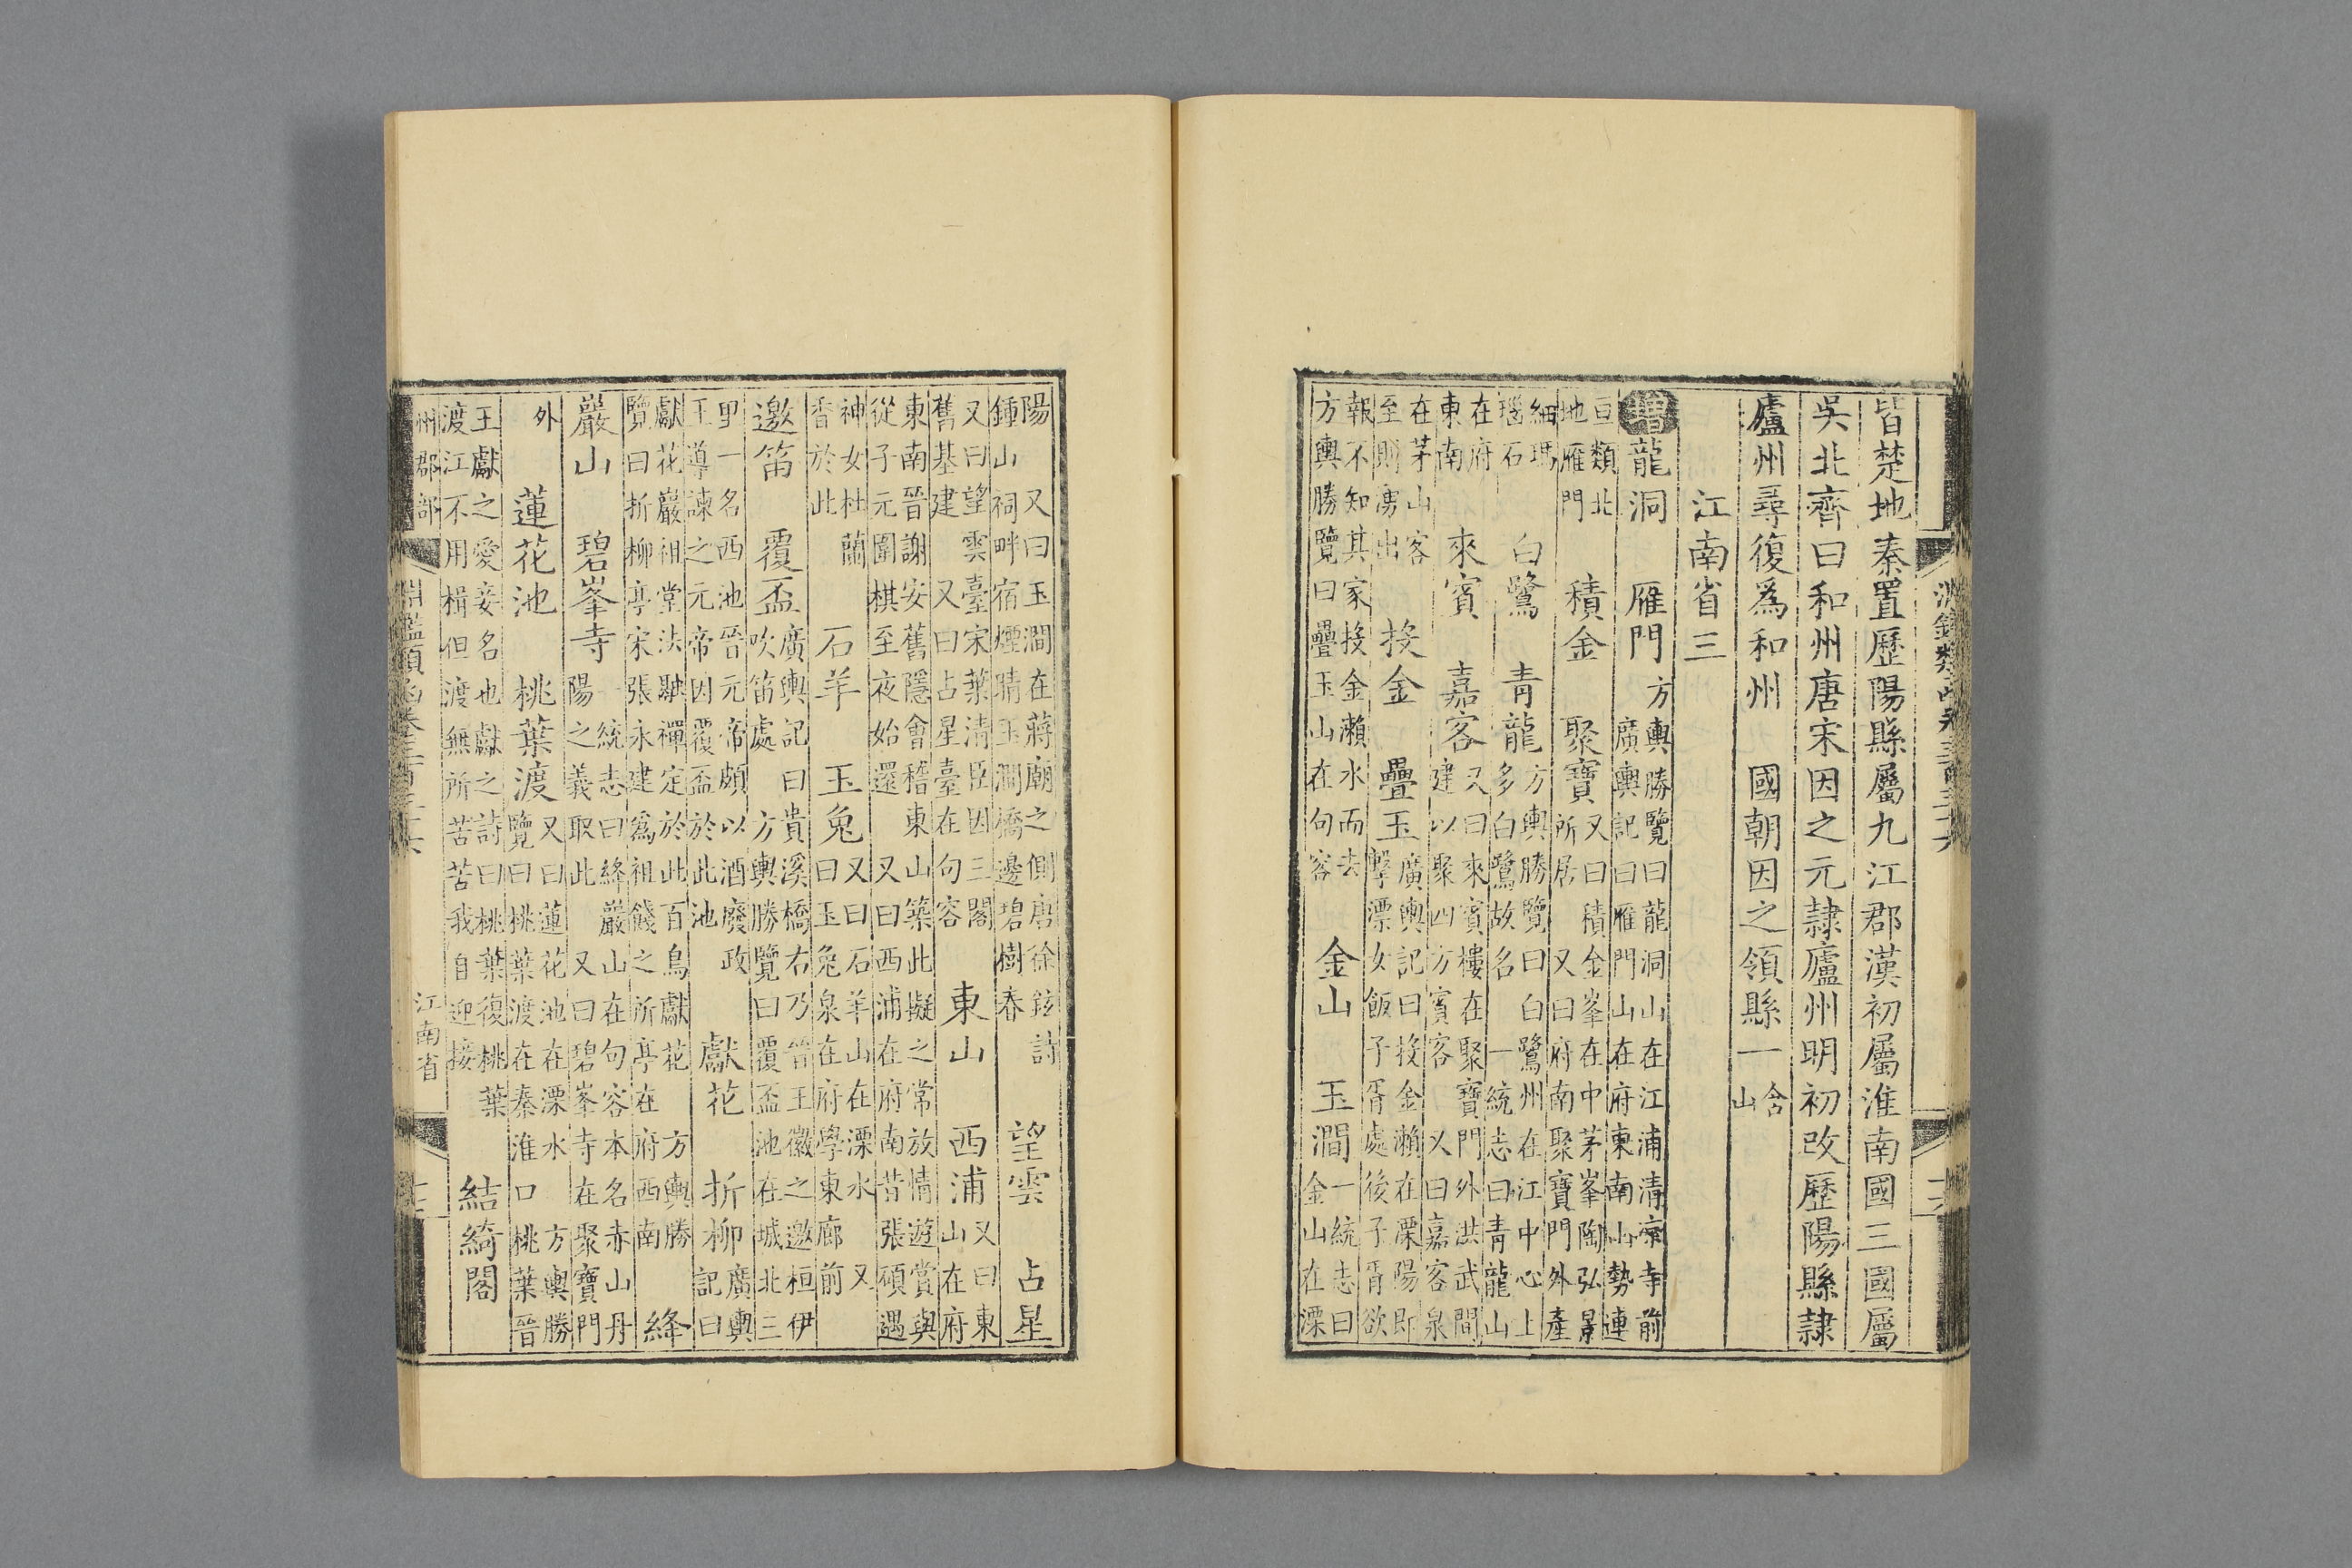 皆楚地秦置歷陽縣屬九江郡漢初屬淮南國三國屬
吳北齊曰和州唐宋因之元隸廬州明初改歷陽縣隸
廬州尋復爲和州 國朝因之領縣一 含山
江南省三
增龍洞 雁門 方輿勝覽曰龍洞山在江浦清凉寺前 廣輿記曰雁門山在府東南山勢連
亘類北地雁門 積金 聚寶 又曰積金峯在中茅峯陶弘景所居 又曰府南聚寶門外產
細瑪瑙石 白鷺 青龍 方輿勝覽曰白鷺州在江中心上多白鷺故名 一統志曰青龍山
在府東南 來賓 嘉客 又曰來賓樓在聚寶門外洪武間建以聚四方賓客 又曰嘉客泉
在茅山客至則湧出 投金 疊玉 廣輿記曰投金瀨在溧陽即擊漂女飯子胥處後子胥欲
報不知其家投金瀨水而去 方輿勝覽曰疊玉山在句容 金山 玉澗 一統志曰金山在溧
陽 又曰玉澗在蔣廟之側唐徐鉉詩鍾山祠畔宿煙晴玉澗橋邊碧樹春 望雲 占星
又曰望雲臺宋葉清臣因三閣舊基建 又曰占星臺在句容 東山 西浦 又曰東山在府
東南晉謝安舊隱會稽東山築此擬之常放情遊賞與從子元圍棋至夜始還 又曰西浦在府南昔張碩遇
神女杜蘭香於此 石羊 玉兔 又曰石羊山在溧水 又曰玉兔泉在府學東廊前
邀笛 覆盃 廣輿記曰貴溪橋右乃晉王徽之邀桓伊吹笛處 方輿勝覽曰覆盃池在城北三
里一名西池晉元帝頗以酒廢政王導諫之元帝因覆盃於此池 獻花 折柳 廣輿記曰
獻花巖祖堂法融禪定於此百鳥獻花 方輿勝覽曰折柳亭宋張永建爲祖餞之所亭在府西南 絳
巖山 碧峯寺 一統志曰絳巖山在句容本名赤山丹陽之義取此 又曰碧峯寺在聚寶門
外 蓮花池 桃葉渡 又曰蓮花池在溧水 方輿勝覽曰桃葉渡在秦淮口桃葉晉
王獻之愛妾名也獻之詩曰桃葉復桃葉渡江不用楫但渡無所苦苦我自迎接 結綺閣
州郡部 淵鑑類函卷三百三十六 江南省